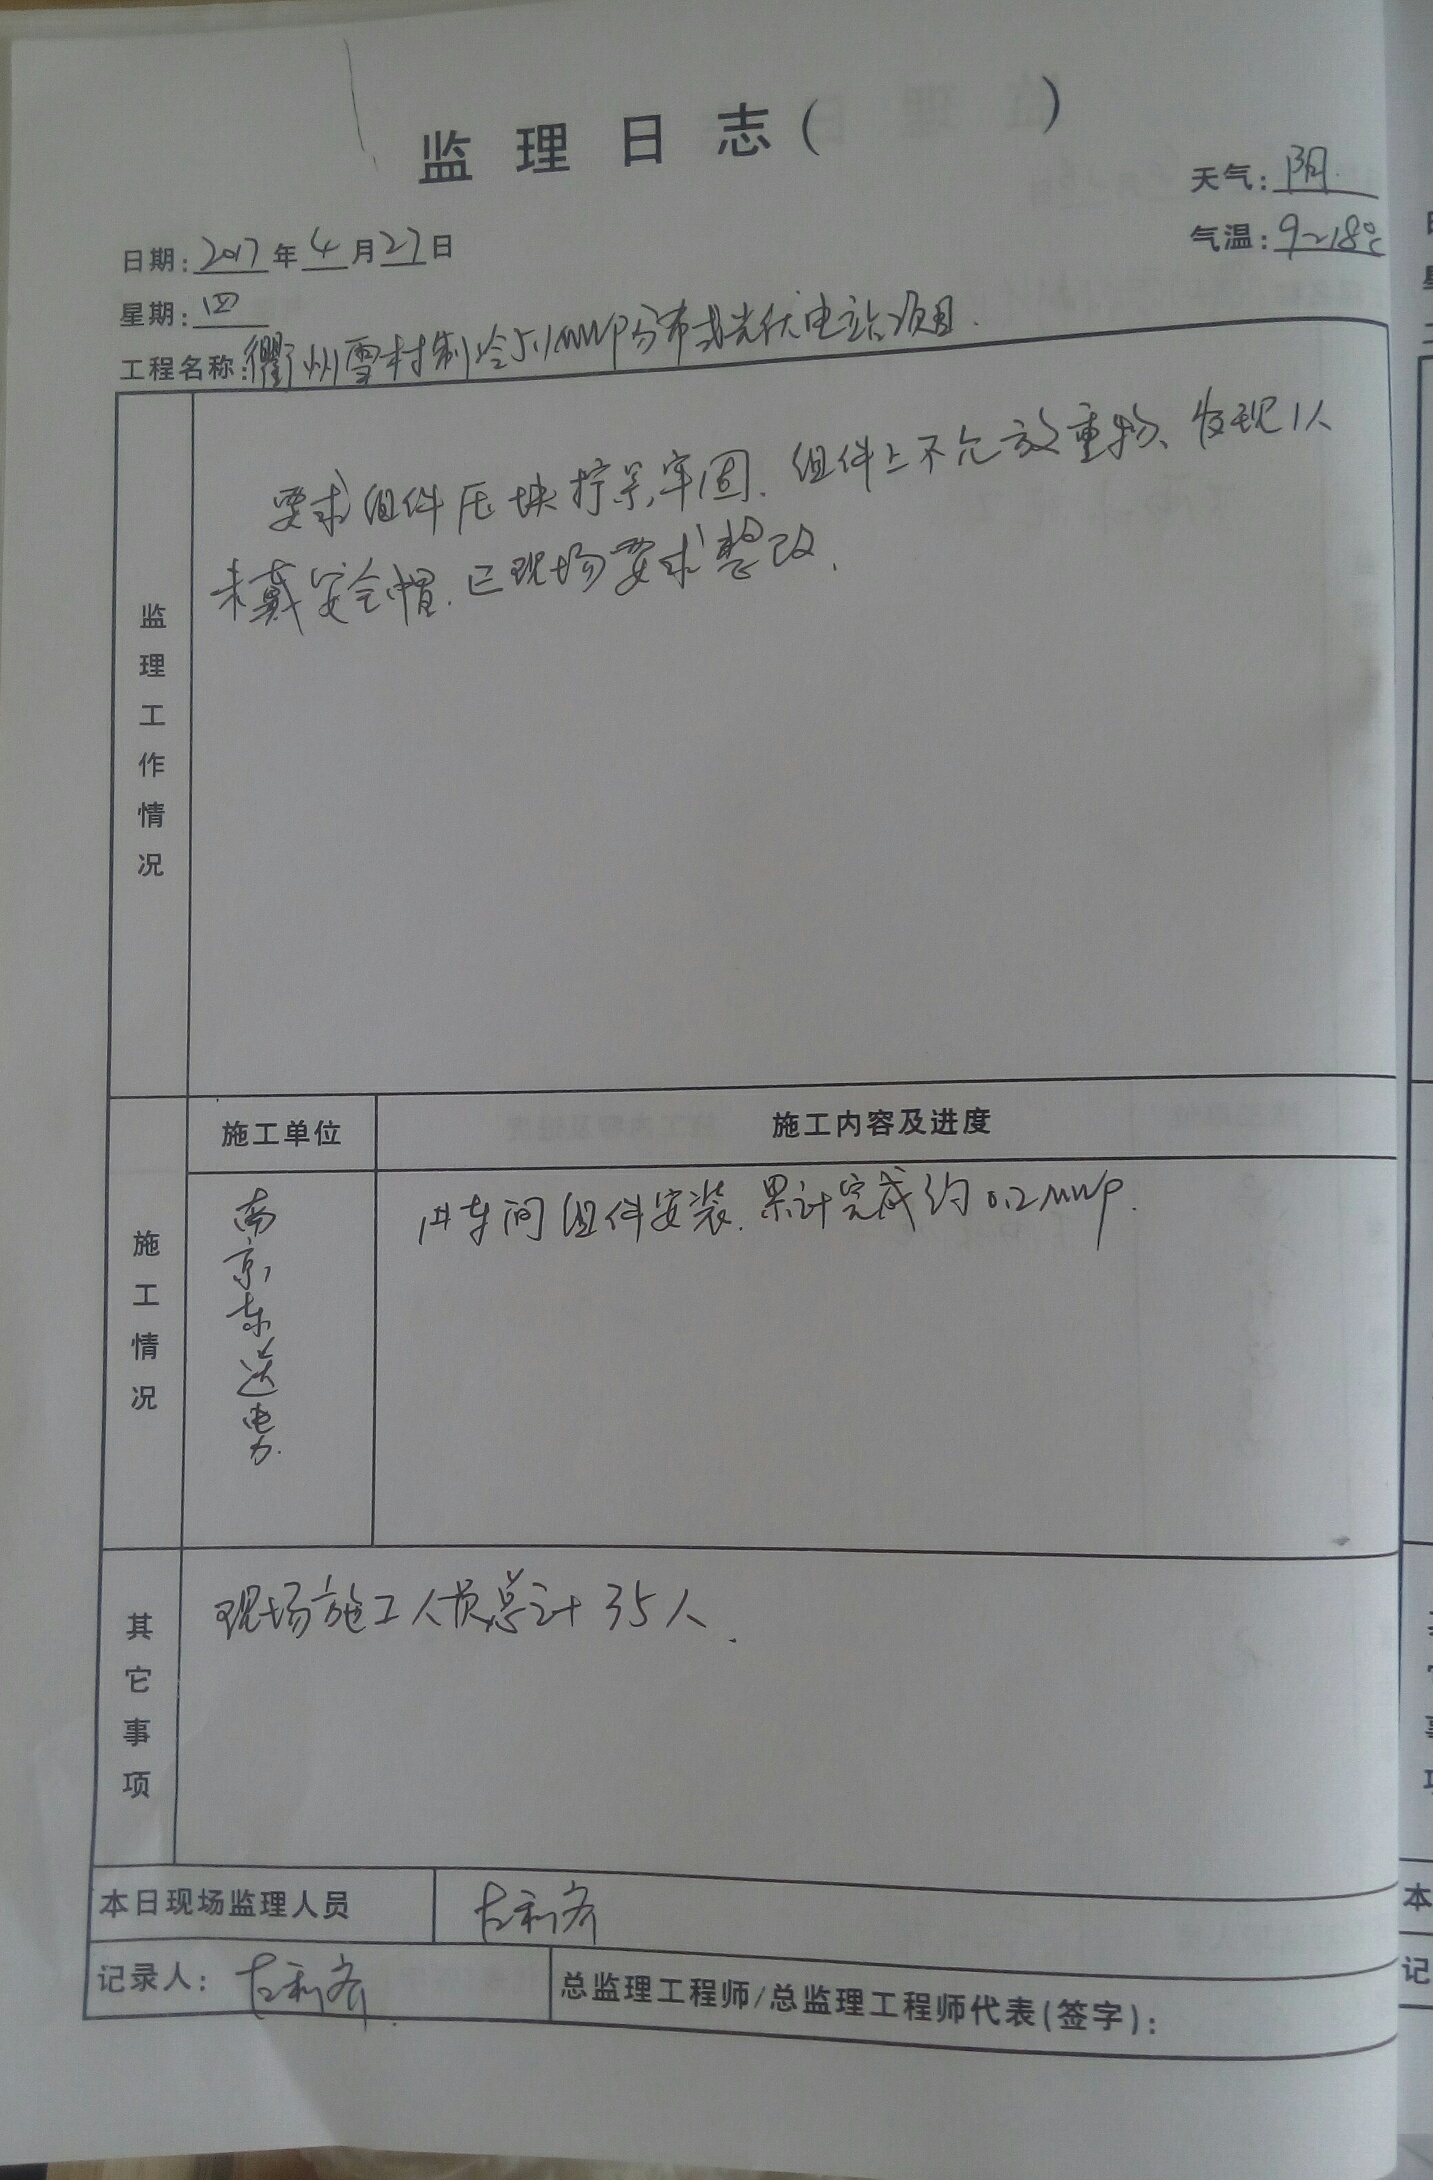 监理日志( )
天气:阴.
日期:2017年4月27日
气温:9~18℃
星期:四
工程名称:衢州雪村制冷5.1MWP分布式光伏电站项目.
监理工作情况
要求组件压块拧紧,牢固.组件上不允放重物、发现1人
未戴安全帽.已现场要求整改.
施工情况
施工单位
施工内容及进度
南京东送电力.
车间组件安装.累计完成约0.2MWP.
其它事项
现场施工人员总计35人.
本日现场监理人员
记录人:
总监理工程师/总监理工程师代表(签字):